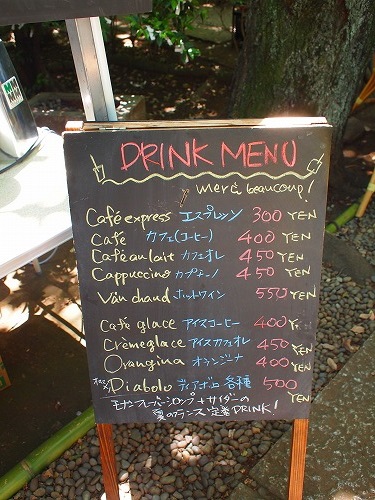 DRINK MENU
merci beaucoup!
Café express エスプレッソ 300 YEN
Cafe カフェ(コーヒー) 400 YEN
Café au lait カフェオレ 450 YEN
Cappuccino カプチーノ 450 YEN
Van chaud ホットワイン 550 YEN
Café glacé アイスコーヒー 400 Y.
Crème glace アイスカフェオレ 450 YEN
Orangina オランジーナ 400 YEN
Diabolo ディアボロ 各種 500 YEN
モナンフレーバーシロップ+サイダーの
夏のフランス定番DRINK!